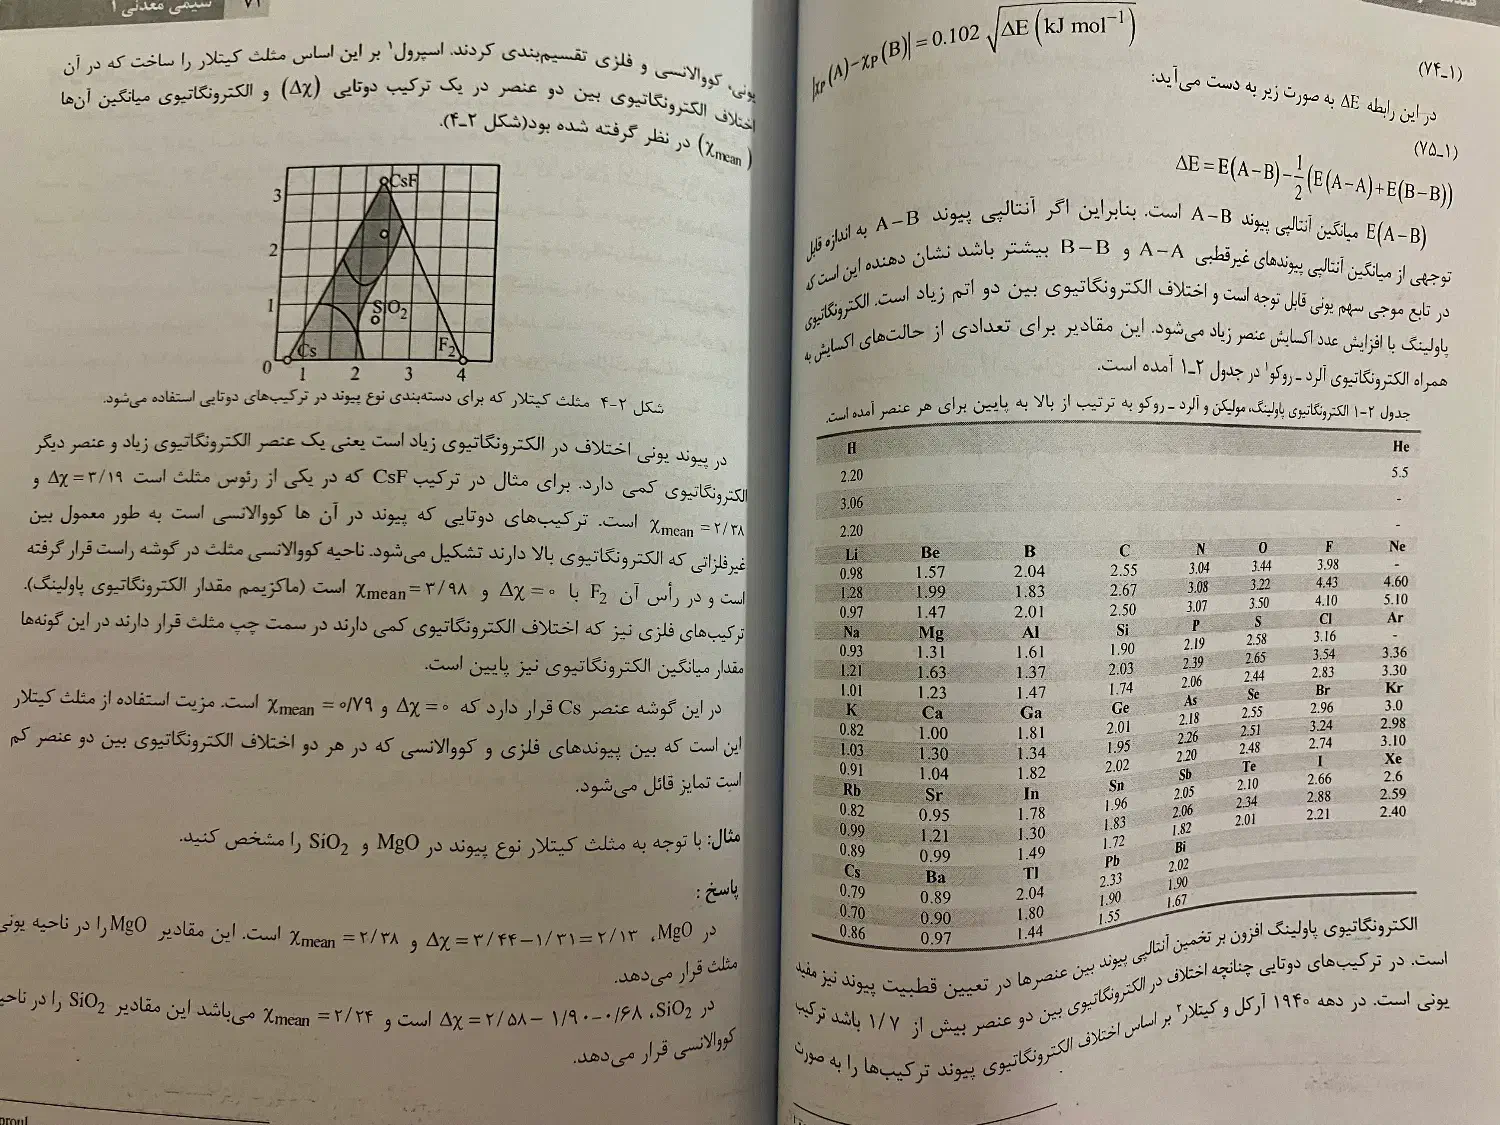 (۱ـ۷۴)
|χP(A)−χP(B)| = 0.102 √ΔE (kJ mol⁻¹)
در این رابطه ΔE به صورت زیر به دست می‌آید:
(۱ـ۷۵)
ΔE = E(A−B) − 1/2 (E(A−A)+E(B−B))
E(A−B) میانگین آنتالپی پیوند A−B است. بنابراین اگر آنتالپی پیوند A−B به اندازه قابل
توجهی از میانگین آنتالپی پیوندهای غیرقطبی A−A و B−B بیشتر باشد نشان دهنده این است که
در تابع موجی سهم یونی قابل توجه است و اختلاف الکترونگاتیوی بین دو اتم زیاد است. الکترونگاتیوی
پاولینگ با افزایش عدد اکسایش عنصر زیاد می‌شود. این مقادیر برای تعدادی از حالت‌های اکسایش به
همراه الکترونگاتیوی آلرد ـ روکو¹ در جدول ۲ـ۱ آمده است.
جدول ۲-۱ الکترونگاتیوی پاولینگ، مولیکن و آلرد ـ روکو به ترتیب از بالا به پایین برای هر عنصر آمده است.
H He
2.20 5.5
3.06 -
2.20 -
Li Be B C N O F Ne
0.98 1.57 2.04 2.55 3.04 3.44 3.98 -
1.28 1.99 1.83 2.67 3.08 3.22 4.43 4.60
0.97 1.47 2.01 2.50 3.07 3.50 4.10 5.10
Na Mg Al Si P S Cl Ar
0.93 1.31 1.61 1.90 2.19 2.58 3.16 -
1.21 1.63 1.37 2.03 2.39 2.65 3.54 3.36
1.01 1.23 1.47 1.74 2.06 2.44 2.83 3.30
K Ca Ga Ge As Se Br Kr
0.82 1.00 1.81 2.01 2.18 2.55 2.96 3.0
1.03 1.30 1.34 1.95 2.26 2.51 3.24 2.98
0.91 1.04 1.82 2.02 2.20 2.48 2.74 3.10
Rb Sr In Sn Sb Te I Xe
0.82 0.95 1.78 1.96 2.05 2.10 2.66 2.6
0.99 1.21 1.30 1.83 2.06 2.34 2.88 2.59
0.89 0.99 1.49 1.72 1.82 2.01 2.21 2.40
Cs Ba Tl Pb Bi
0.79 0.89 2.04 2.33 2.02
0.70 0.90 1.80 1.90 1.90
0.86 0.97 1.44 1.55 1.67
الکترونگاتیوی پاولینگ افزون بر تخمین آنتالپی پیوند بین عنصرها در تعیین قطبیت پیوند نیز مفید
است. در ترکیب‌های دوتایی چنانچه اختلاف در الکترونگاتیوی بین دو عنصر بیش از ۱/۷ باشد ترکیب
یونی است. در دهه ۱۹۴۰ آرکل و کیتلار² بر اساس اختلاف الکترونگاتیوی پیوند ترکیب‌ها را به صورت
۷۱
شیمی معدنی ۱
یونی، کووالانسی و فلزی تقسیم‌بندی کردند. اسپرول¹ بر این اساس مثلث کیتلار را ساخت که در آن
اختلاف الکترونگاتیوی بین دو عنصر در یک ترکیب دوتایی (Δχ) و الکترونگاتیوی میانگین آن‌ها
(χmean) در نظر گرفته شده بود(شکل ۲ـ۴).
CsF
3
2
1
SiO2
Cs
F2
0 1 2 3 4
شکل ۲-۴ مثلث کیتلار که برای دسته‌بندی نوع پیوند در ترکیب‌های دوتایی استفاده می‌شود.
در پیوند یونی اختلاف در الکترونگاتیوی زیاد است یعنی یک عنصر الکترونگاتیوی زیاد و عنصر دیگر
الکترونگاتیوی کمی دارد. برای مثال در ترکیب CsF که در یکی از رئوس مثلث است Δχ = ۳/۱۹ و
χmean = ۲/۳۸ است. ترکیب‌های دوتایی که پیوند در آن ها کووالانسی است به طور معمول بین
غیرفلزاتی که الکترونگاتیوی بالا دارند تشکیل می‌شود. ناحیه کووالانسی مثلث در گوشه راست قرار گرفته
است و در رأس آن F2 با Δχ = ۰ و χmean = ۳/۹۸ است (ماکزیمم مقدار الکترونگاتیوی پاولینگ).
ترکیب‌های فلزی نیز که اختلاف الکترونگاتیوی کمی دارند در سمت چپ مثلث قرار دارند در این گونه‌ها
مقدار میانگین الکترونگاتیوی نیز پایین است.
در این گوشه عنصر Cs قرار دارد که Δχ = ۰ و χmean = ۰/۷۹ است. مزیت استفاده از مثلث کیتلار
این است که بین پیوندهای فلزی و کووالانسی که در هر دو اختلاف الکترونگاتیوی بین دو عنصر کم
است تمایز قائل می‌شود.
مثال: با توجه به مثلث کیتلار نوع پیوند در MgO و SiO2 را مشخص کنید.
پاسخ :
در MgO، Δχ = ۳/۴۴−۱/۳۱ = ۲/۱۳ و χmean = ۲/۳۸ است. این مقادیر MgO را در ناحیه یونی
مثلث قرار می‌دهد.
در SiO2، Δχ = ۲/۵۸− ۱/۹۰−۰/۶۸ است و χmean = ۲/۲۴ می‌باشد این مقادیر SiO2 را در ناحیه
کووالانسی قرار می‌دهد.